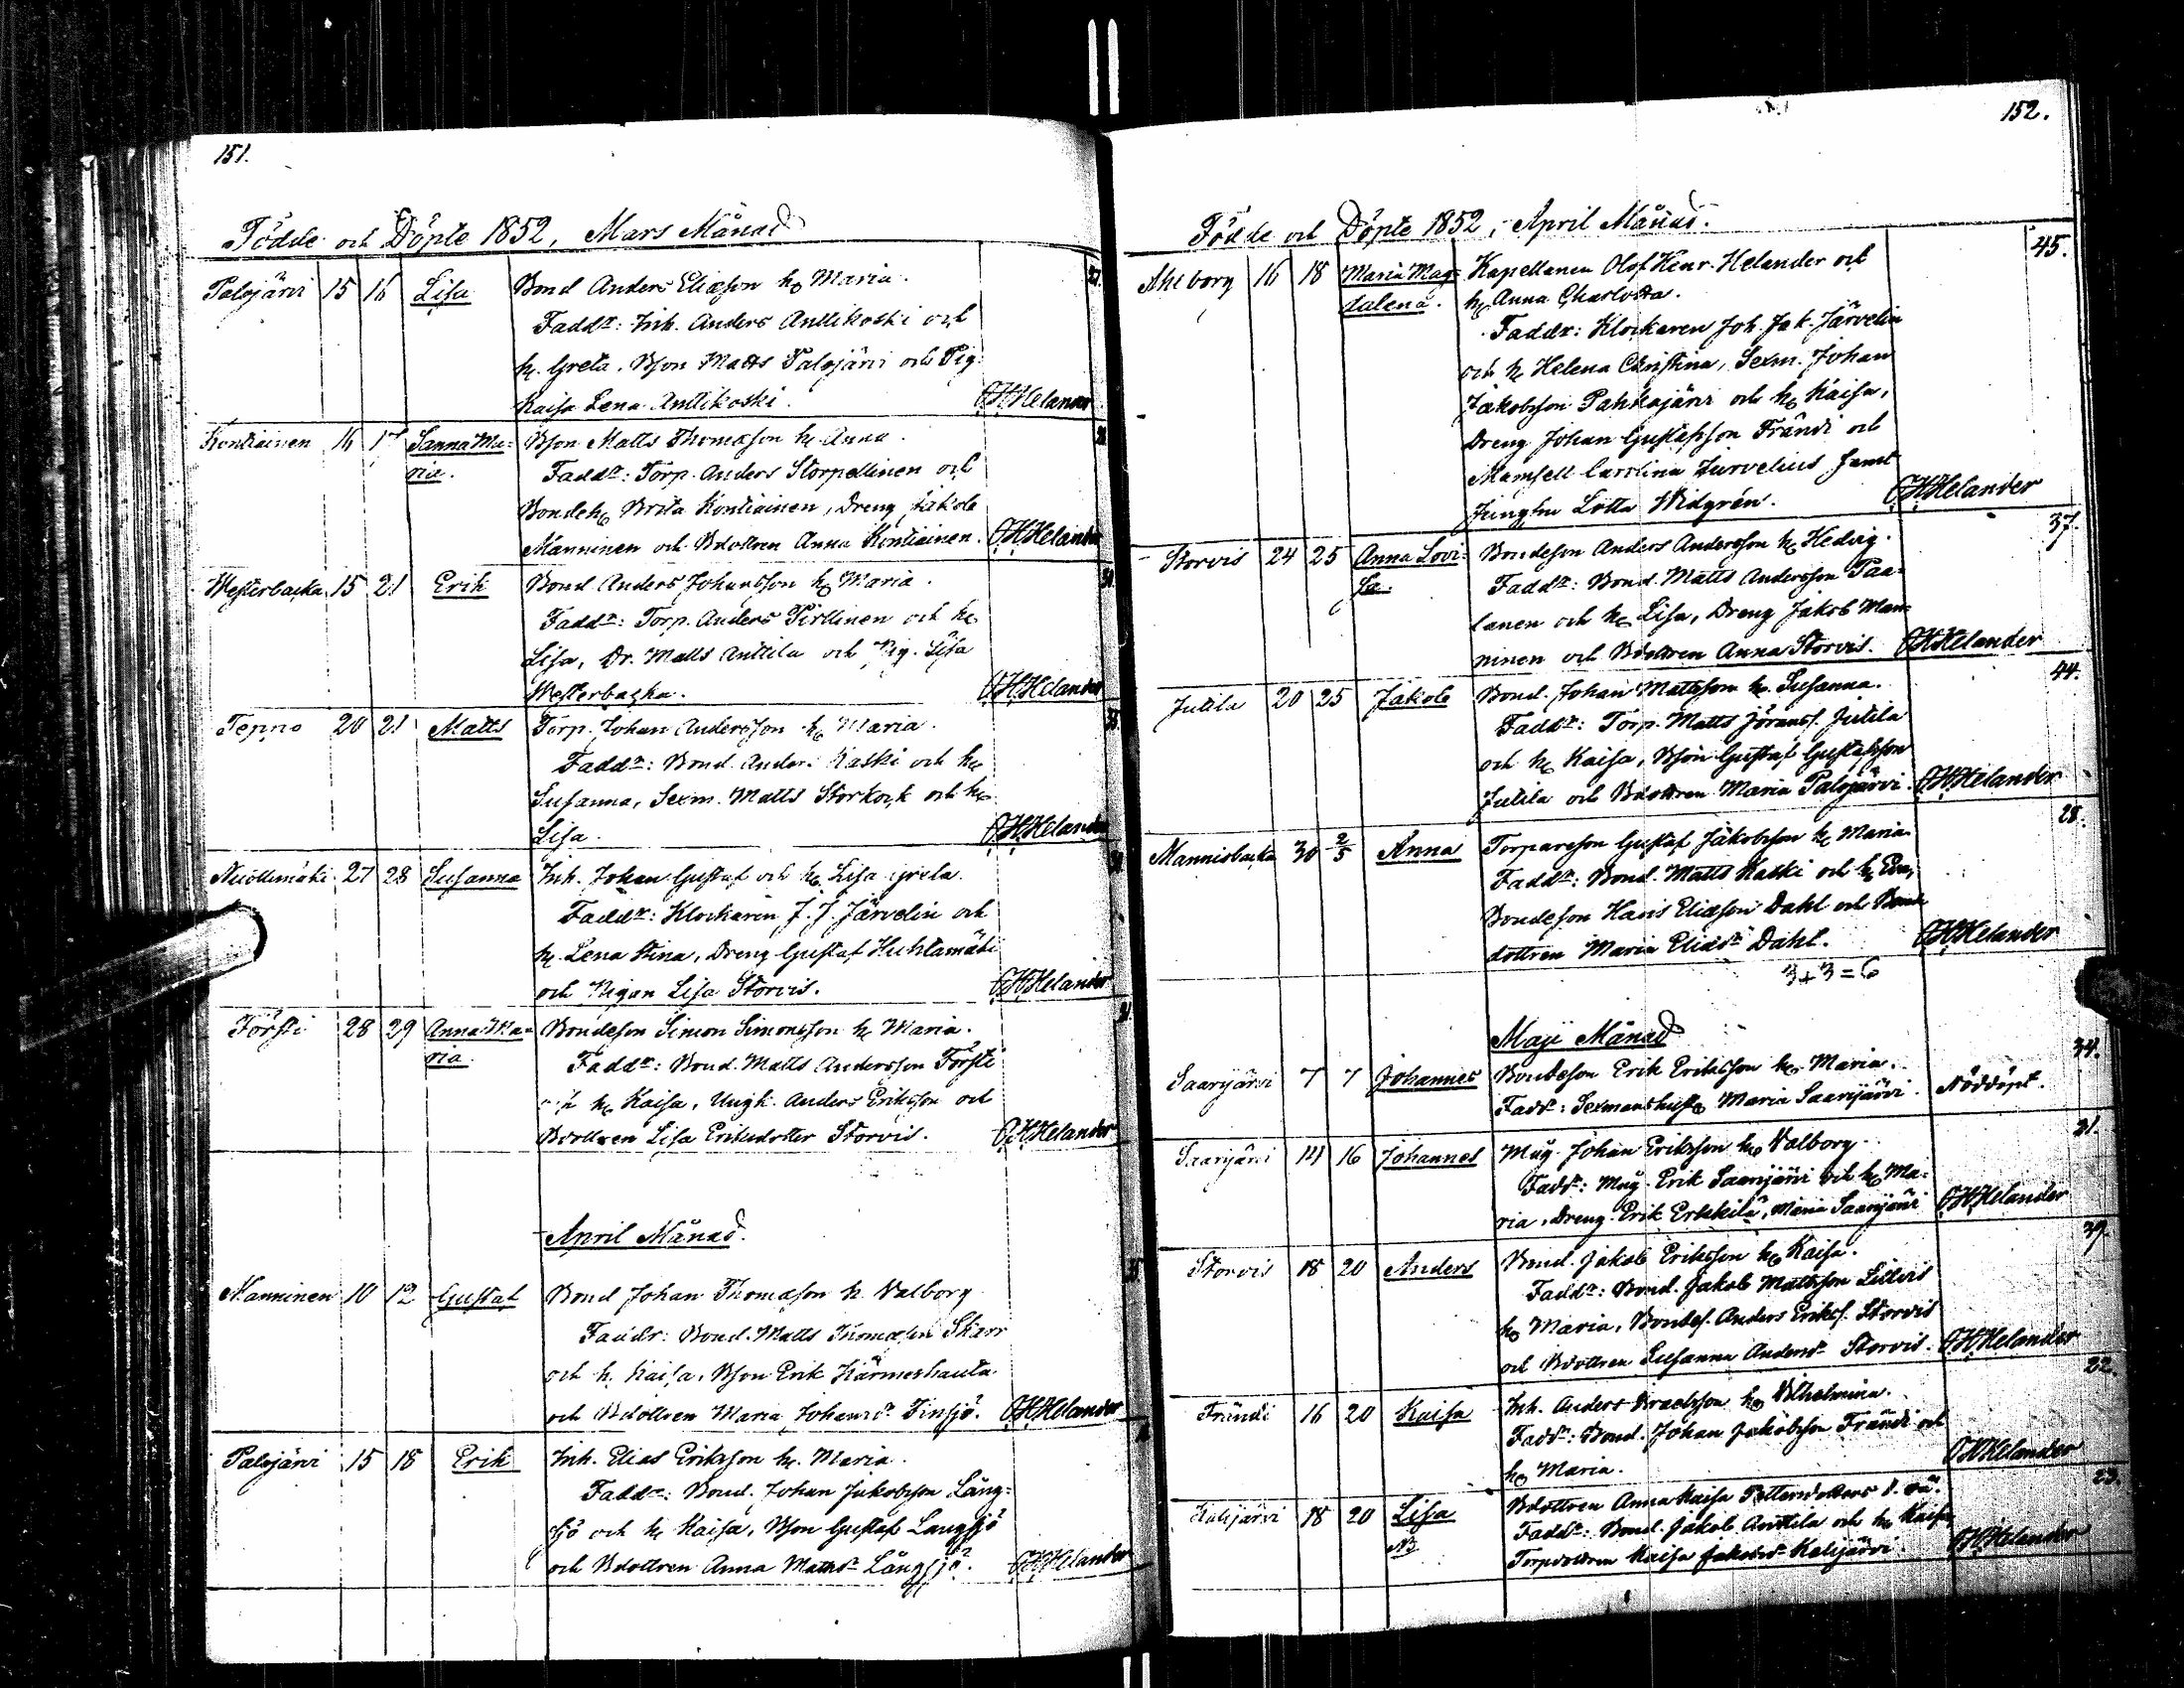 151.
Födde och Döpte 1852, Mars Månad
Palojärvi 15 16 Lisa Bond Anders Eliasson h. Maria. 27.
Faddr: Inh. Anders Anttikoski och
h. Greta, Bson Matts Palojärvi och Pig.
Kaisa Lena Anttikoski. O.H.Helander
Kontiainen 16 17 Sanna Ma= Bson Matts Thomasson h. Anna.
ria. Faddr: Torp. Anders Storpellinen och
Bondeh. Brita Kontiainen, Dreng Jakob
Manninen och Bdottren Anna Kontiainen. O.H.Helander
Westerbacka 15 21 Erik Bond Anders Johansson h. Maria.
Faddr: Torp. Anders Pirttinen och h.
Lisa, Dr. Matts Anttila och Pig. Lisa
Westerbacka. O.H.Helander
Teppo 20 21 Matts Torp. Johan Andersson h. Maria.
Faddr: Bond. Anders Kaski och h.
Susanna, Sexm. Matts Storkock och h.
Lisa. O.H.Helander
27 28 Susanna Inh. Johan Gustaf och h. Lisa Greta.
Faddr: Klockaren J. J. Järvelin och
h. Lena Stina, Dreng Gustaf Huhtamäki
och Pigan Lisa Storvis. O.H.Helander
Försti 28 29 Anna Ma= Bondeson Simon Simonsson h. Maria. 31.
ria. Faddr: Bond. Matts Andersson Försti
och h. Kaisa, Ungk. Anders Eriksson och
Bdottren Lisa Eriksdotter Storvis. O.H.Helander
April Månad.
Manninen 10 12 Gustaf Bond Johan Thomasson h. Valborg
Faddr: Bond. Matts Thomasson Skarr
och h. Kaisa, Bson Erik Kärmeshauta
och Bdottren Maria Johansdr Finsjö. O.H.Helander
Palojärvi 15 18 Erik Inh. Elias Eriksson h. Maria.
Faddr: Bond. Johan Jakobsson Lång=
sjö och h. Kaisa, Bson Gustaf Langsjö
och Bdottren Anna Mattsdr Långsjö. O.H.Helander
152.
Födde och Döpte 1852, April Månad.
Ahlborg 16 18 Maria Mag= Kapellanen Olof Henr. Helander och 45.
dalena. h. Anna Charlotta.
Faddr: Klockaren Joh. Jak. Järvelin
och h. Helena Christina, Sexm. Johan
Jakobsson Pahkajärvi och h. Kaisa,
Dreng Johan Gustafsson Frändi och
Mamsell Carolina samt
Lotta Widgrén. O.H.Helander
Storvis 24 25 Anna Lovi= Bondeson Anders Andersson h. Hedvig. 37.
sa. Faddr: Bond. Matts Andersson Paa=
lanen och h. Lisa, Dreng Jakob Man=
ninen och Bdottren Anna Storvis. O.H.Helander
Jutila 20 25 Jakob Bond. Johan Mattsson h. Susanna. 44.
Faddr: Torp. Matts Jöranss. Jutila
och h. Kaisa, Bson Gustaf Gustafsson
Jutila och Bdottren Maria Palojärvi. O.H.Helander
Mannisbacka 30 2/5 Anna Torpareson Gustaf Jakobsson h. Maria. 28.
Faddr: Bond. Matts Kaski och h. Eva,
Bondeson Hans Eliasson Dahl och Bonde
dottren Maria Eliaedr Dahl. O.H.Helander
3+3=6
Maji Månad
Saarijärvi 7 7 Johannes Bondeson Erik Eriksson h. Maria. 34.
Faddr: Sexmanshust Maria Saarijärvi. Nöddöpt.
Saarijärvi 14 16 Johannes Mag. Johan Eriksson h. Valborg. 31.
Faddr: Mag. Erik Saarijärvi och h. Ma=
ria, Dreng. Erik Erkkilä, Maria Saarijärvi O.H.Helander
Storvis 18 20 Anders Bond. Jakob Eriksson h. Kaisa. 39.
Faddr: Bond. Jakob Mattsson Lillvis
h. Maria, Bondes. Anders Erikss. Storvis
och Bdottren Susanna Andersdr Storvis. O.H.Helander
Frändi 16 20 Kaisa Inh. Anders Israelsson h. Vilhelmina. 22.
Faddr: Bond. Johan Jakobsson Frändi och
h. Maria. O.H.Helander
Kalijärvi 18 20 Lisa Bdottren Anna Kaisa Pettersdotters o. ä. 23.
NB Faddr: Bond. Jakob Anttila och h. Kaisa,
Torpdottren Kaisa Jakobsdr Kalijärvi O.H.Helander